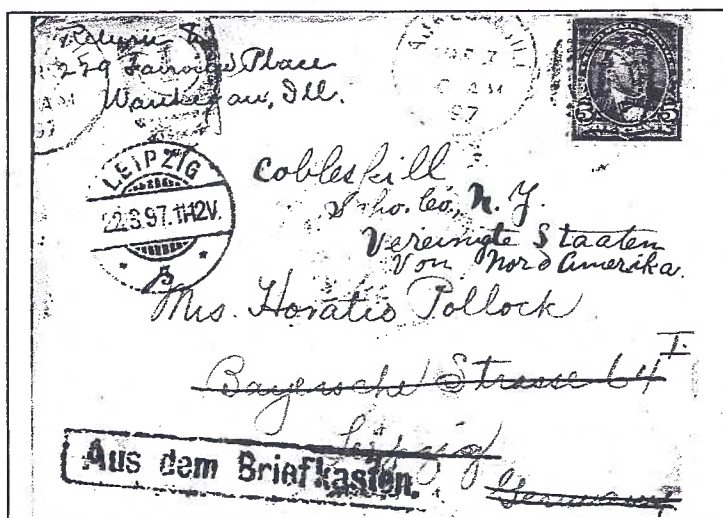 Return to
229 Place
Waukegan, Ill.
WAUKEGAN, ILL
7
AM
97
AM
97
5
LEIPZIG
22.3.97.11-12V.
Cobleskill
Scho. Co., N. Y.
Vereinigte Staaten
Von Nord Amerika.
Mrs. Horatio Pollock
Bayersche Strasse 64 I.
Leipzig
Germany
Aus dem Briefkasten.